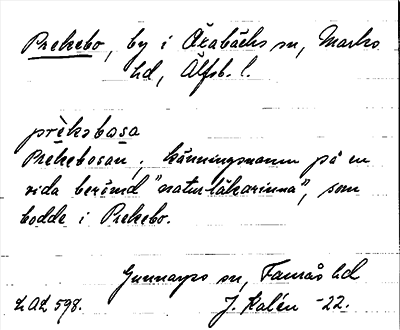 Prekebo, by i Örabäcks sn, Marks
hd, Älfsb. l.
prèksbosa
Prekebosan, känningsnamn på en
vida berömd "naturläkarinna", som
bodde i Prekebo.
Gunnarps sn, Faurås hd
LAL 598. J. Kalén -22.